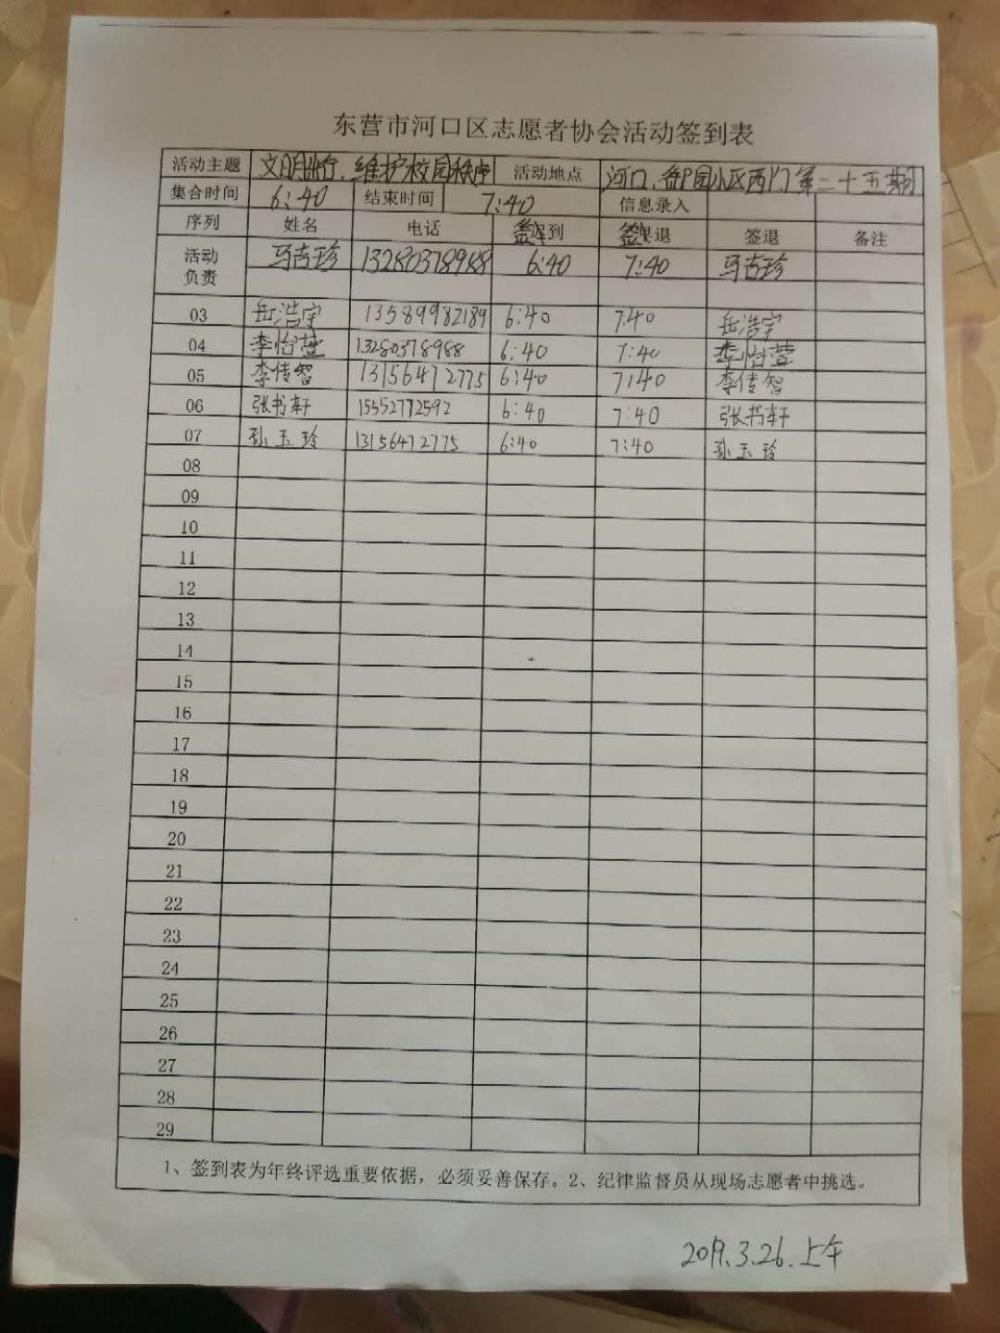 东营市河口区志愿者协会活动签到表
活动主题 文明出行、维护校园秩序 活动地点 河口、 园小区西门 第二十五期
集合时间 6:40 结束时间 7:40 信息录入
序列 姓名 电话 到 退 签退 备注
活动负责 马吉珍 13280378988 6:40 7:40 马吉珍
03 岳浩宇 13589982189 6:40 7:40 岳浩宇
04 李怡萱 13280378988 6:40 7:40 李怡萱
05 李传智 13156472775 6:40 7:40 李传智
06 张书轩 15552772592 6:40 7:40 张书轩
07 孙玉玲 13156472775 6:40 7:40 孙玉玲
08
09
10
11
12
13
14
15
16
17
18
19
20
21
22
23
24
25
26
27
28
29
1、签到表为年终评选重要依据，必须妥善保存。2、纪律监督员从现场志愿者中挑选。
2019.3.26.上午